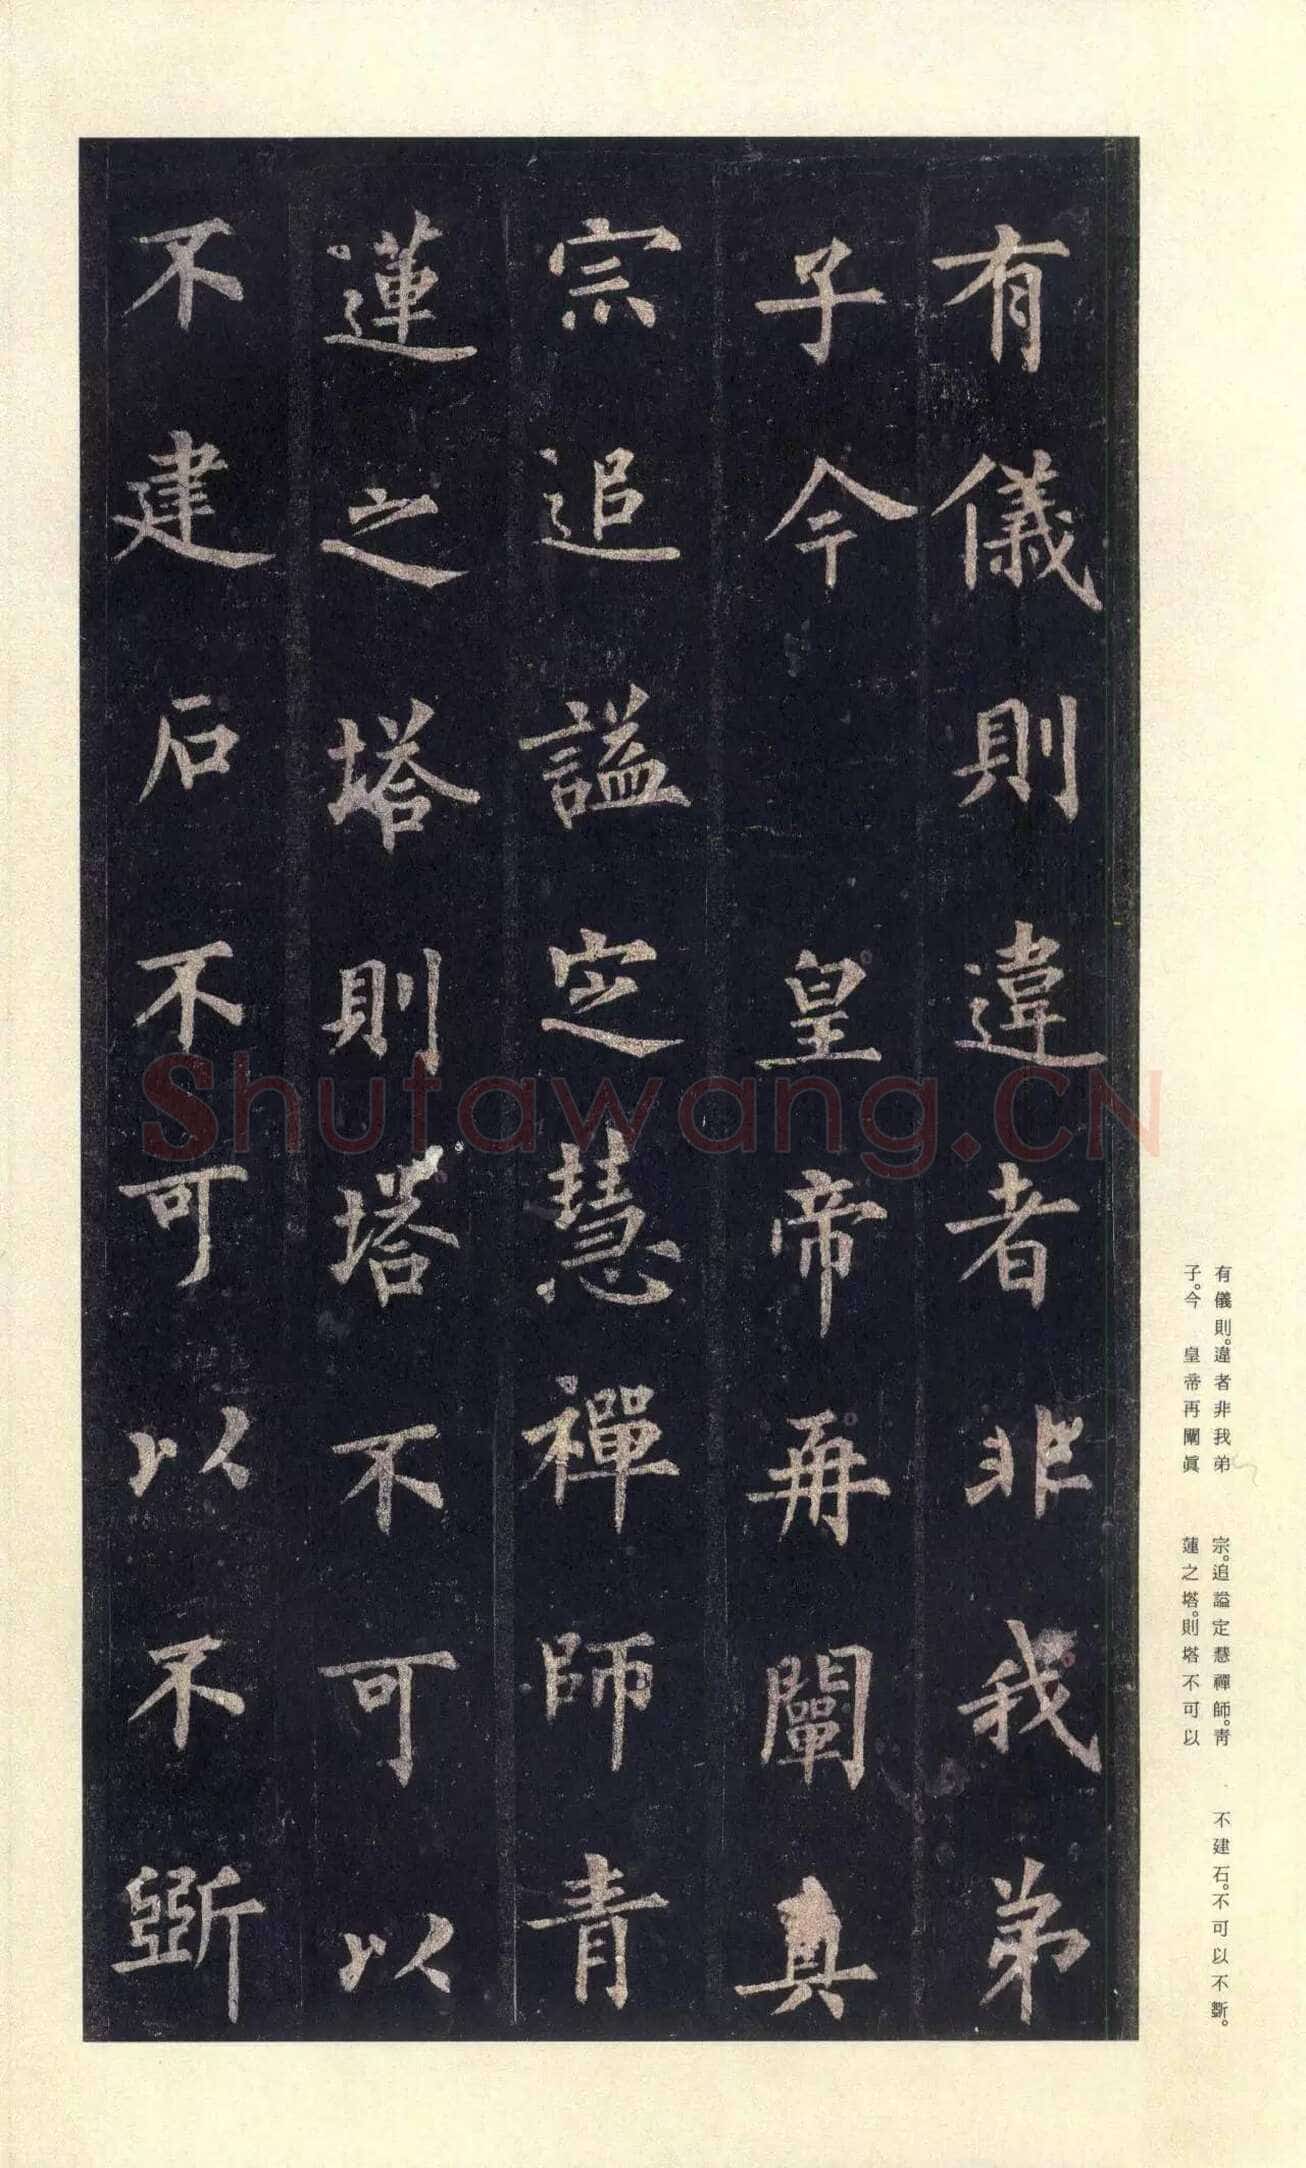 有儀則違者非我弟
子今 皇帝再闡真
宗追謚定慧禪師青
蓮之塔則塔不可以
不建石不可以不斲
Shutawang.CN
有儀則。違者非我弟
子。今 皇帝再闡眞
宗。追謚定慧禪師。靑
蓮之塔。則塔不可以
不建石。不可以不斲。